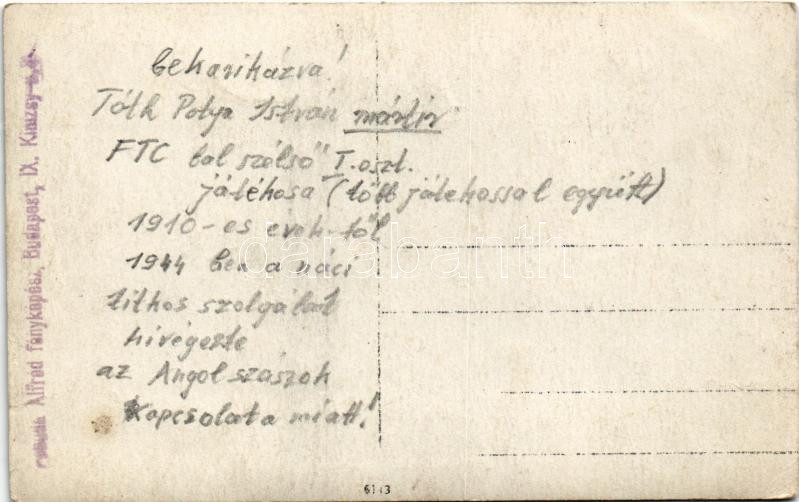 bekarikázva!
Tóth Potya István mártir
FTC bal szélső" I. oszt.
játékosa (több játekossal együtt)
1910-es evek-től
1944 ben a náci
titkos szolgálat
kivégezte
az Angol szászok
Kapcsolata miatt!
Alfred fényképész, Budapest, IX. Kinizsy-u.
darabanth
6143